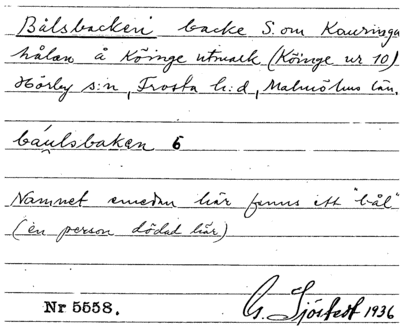 Bålsbacken backe S. om Kauringa
hålan å Köinge utmark (Köinge nr 10)
Hörby s:n, Frosta h:d, Malmöhus län.
báulsbaken 6
Namnet emedan här finns ett "bål"
(en person dödad här)
Nr 5558. G. Sjöstedt 1936